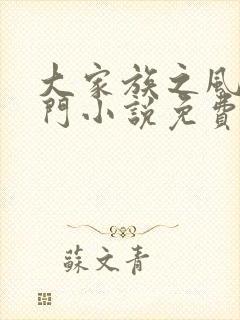 大家族之風
門小說免費
蘇文青